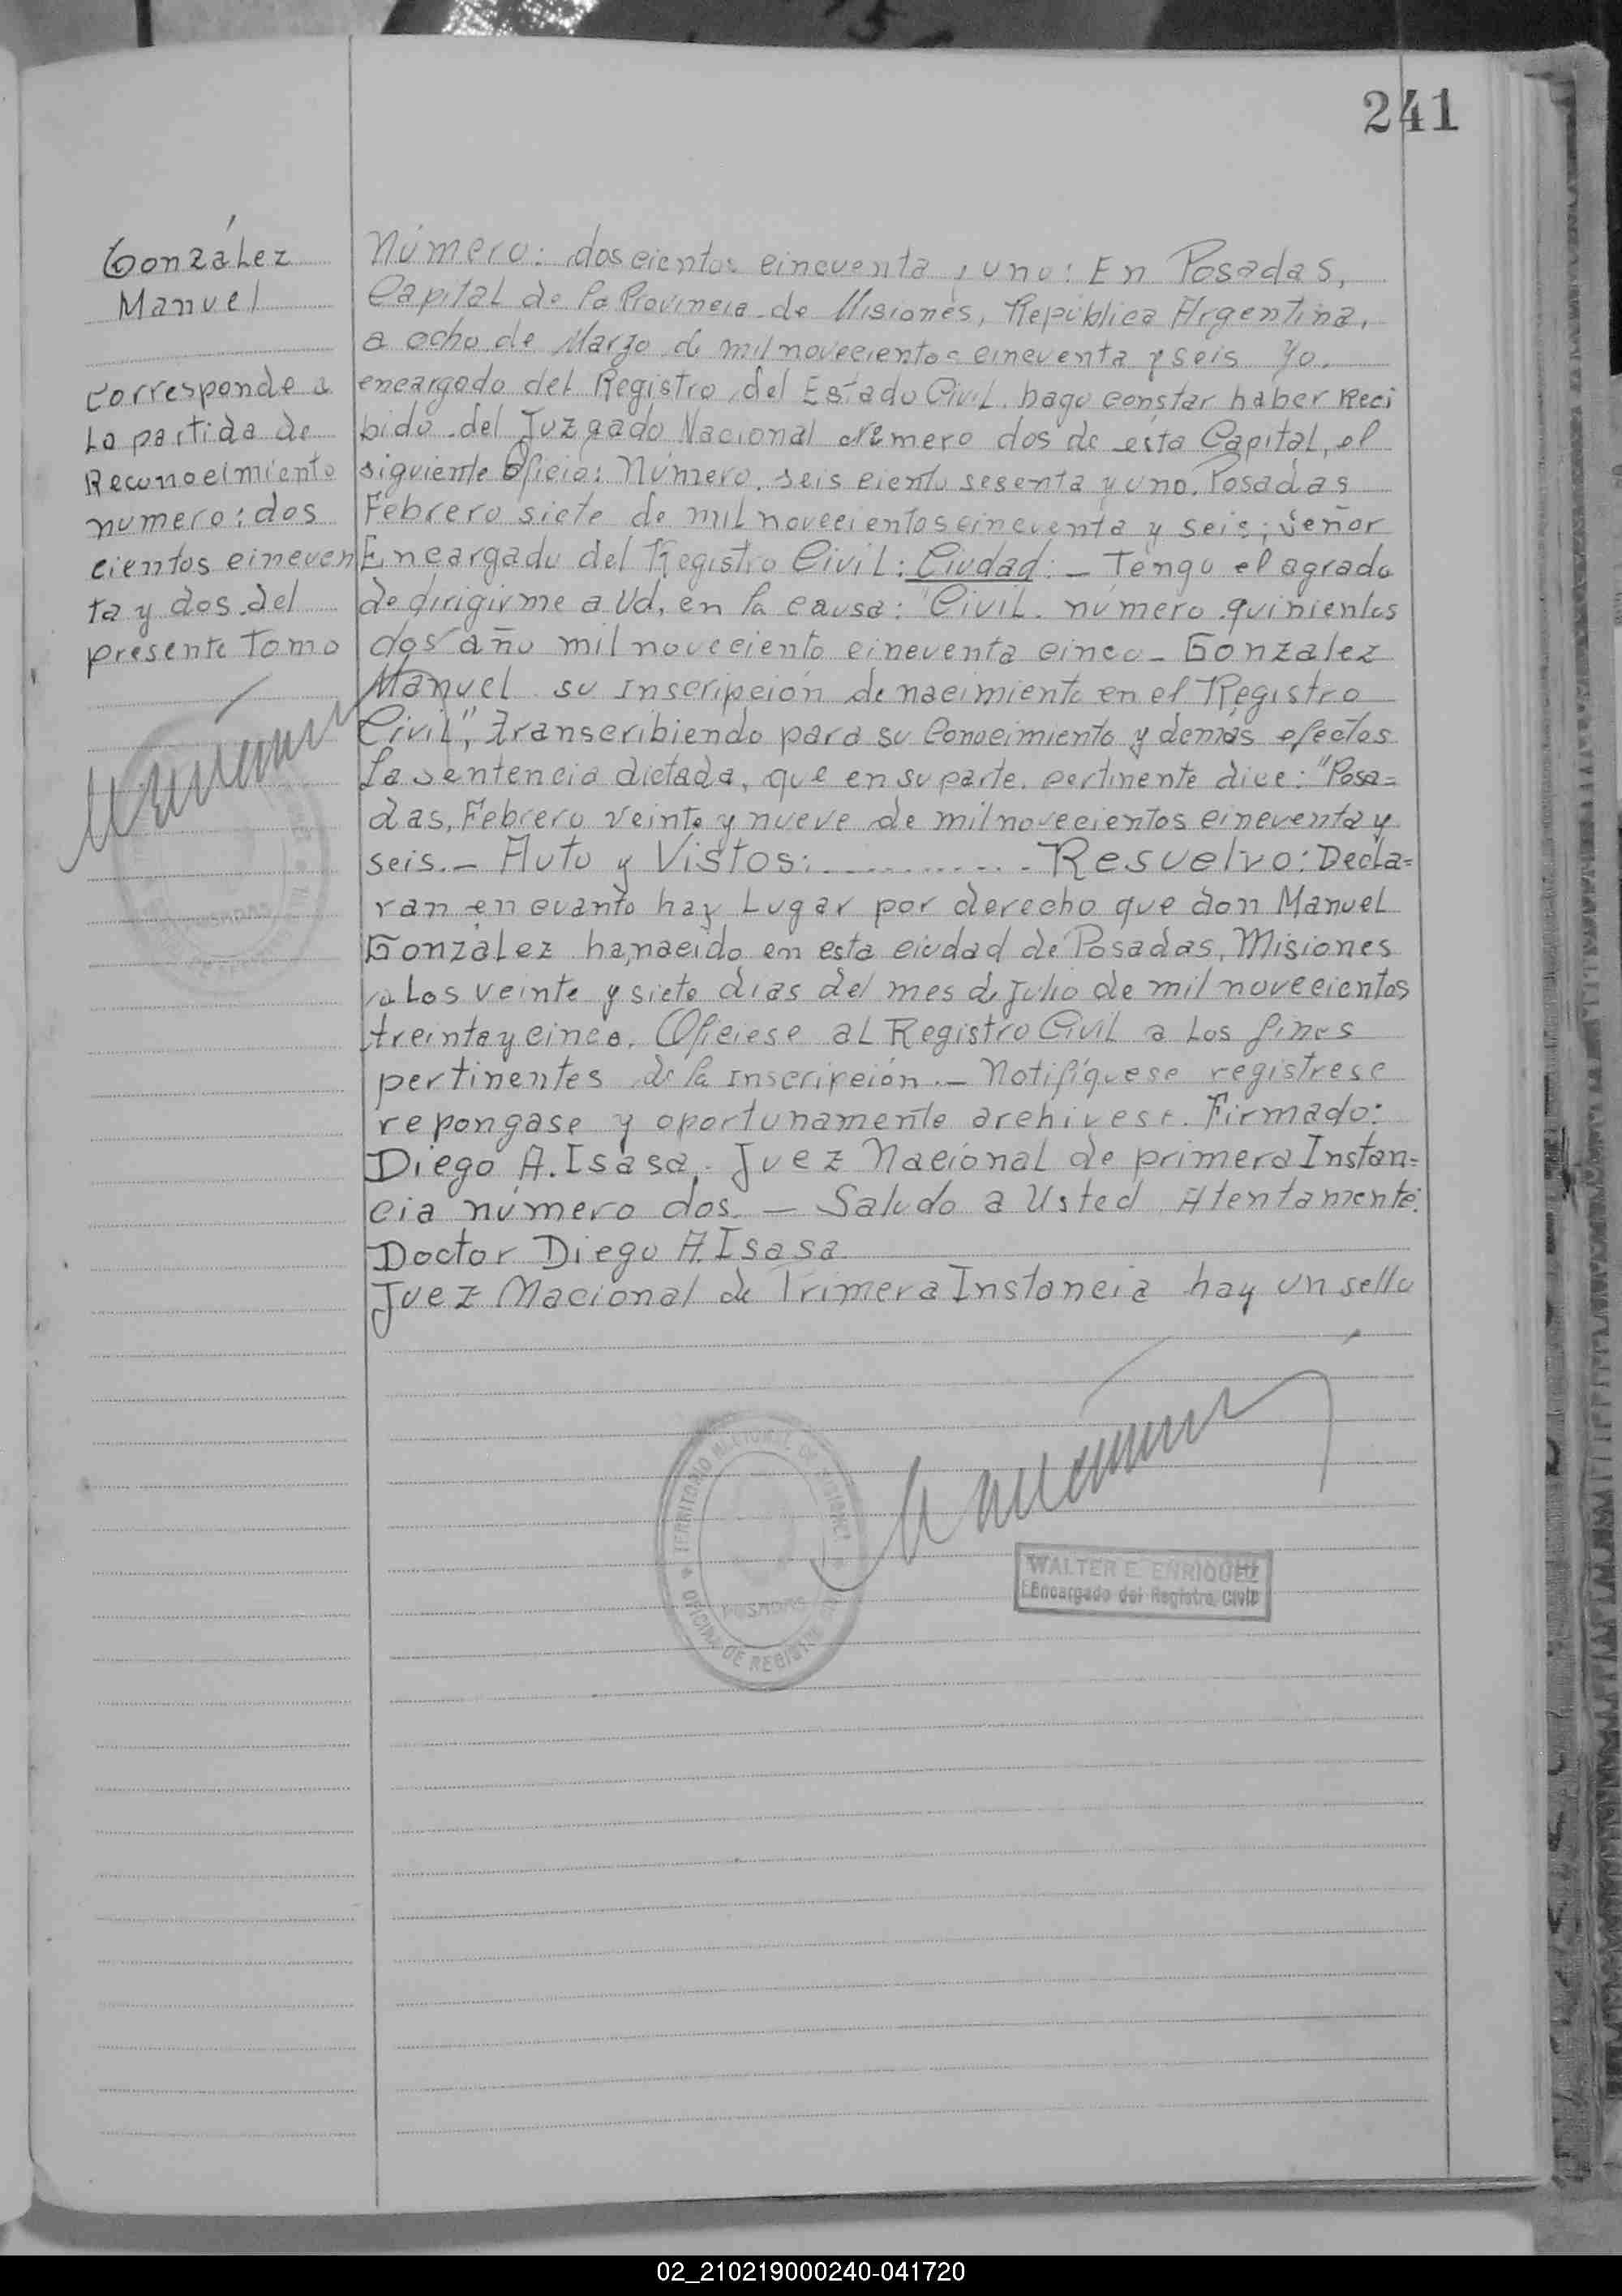 241
González
Manuel
corresponde a
La partida de
Reconocimiento
numero: dos
cientos cincuen
ta y dos del
presente Tomo
Número: doscientos cincuenta y uno: En Posadas,
Capital de la Provincia de Misiones, República Argentina,
a ocho de Marzo de mil novecientos cincuenta y seis Yo,
encargado del Registro del Estado Civil, hago constar haber Reci
bido del Juzgado Nacional número dos de esta Capital, el
siguiente Oficio: Número seis ciento sesenta y uno. Posadas
Febrero siete de mil novecientos cincuenta y seis; señor
Encargado del Registro Civil: Ciudad: – Tengo el agrado
de dirigirme a Ud, en la causa: "Civil número quinientos
dos año mil noveciento cincuenta cinco – Gonzalez
Manuel su inscripción de nacimiento en el Registro
Civil", transcribiendo para su conocimiento y demás efectos
la sentencia dictada, que en su parte pertinente dice: "Posa=
das, Febrero veinte y nueve de mil novecientos cincuenta y
seis. – Auto y Vistos: .......... Resuelvo: Decla=
ran en cuanto hay Lugar por derecho que don Manuel
González ha nacido en esta ciudad de Posadas, Misiones
a Los veinte y siete días del mes de Julio de mil novecientos
treinta y cinco. Oficiese al Registro Civil a Los fines
pertinentes de la inscripción. – Notifíquese registrese
repongase y oportunamente archivese. Firmado:
Diego A. Isasa. Juez Nacional de primera Instan=
cia número dos. – Saludo a Usted Atentamente.
Doctor Diego A. Isasa
Juez Nacional de Primera Instancia hay un sello
TERRITORIO NACIONAL DE MISIONES
POSADAS
OFICINA DE REGISTRO
WALTER E. ENRIQUEZ
Encargado del Registro Civil
02_210219000240-041720